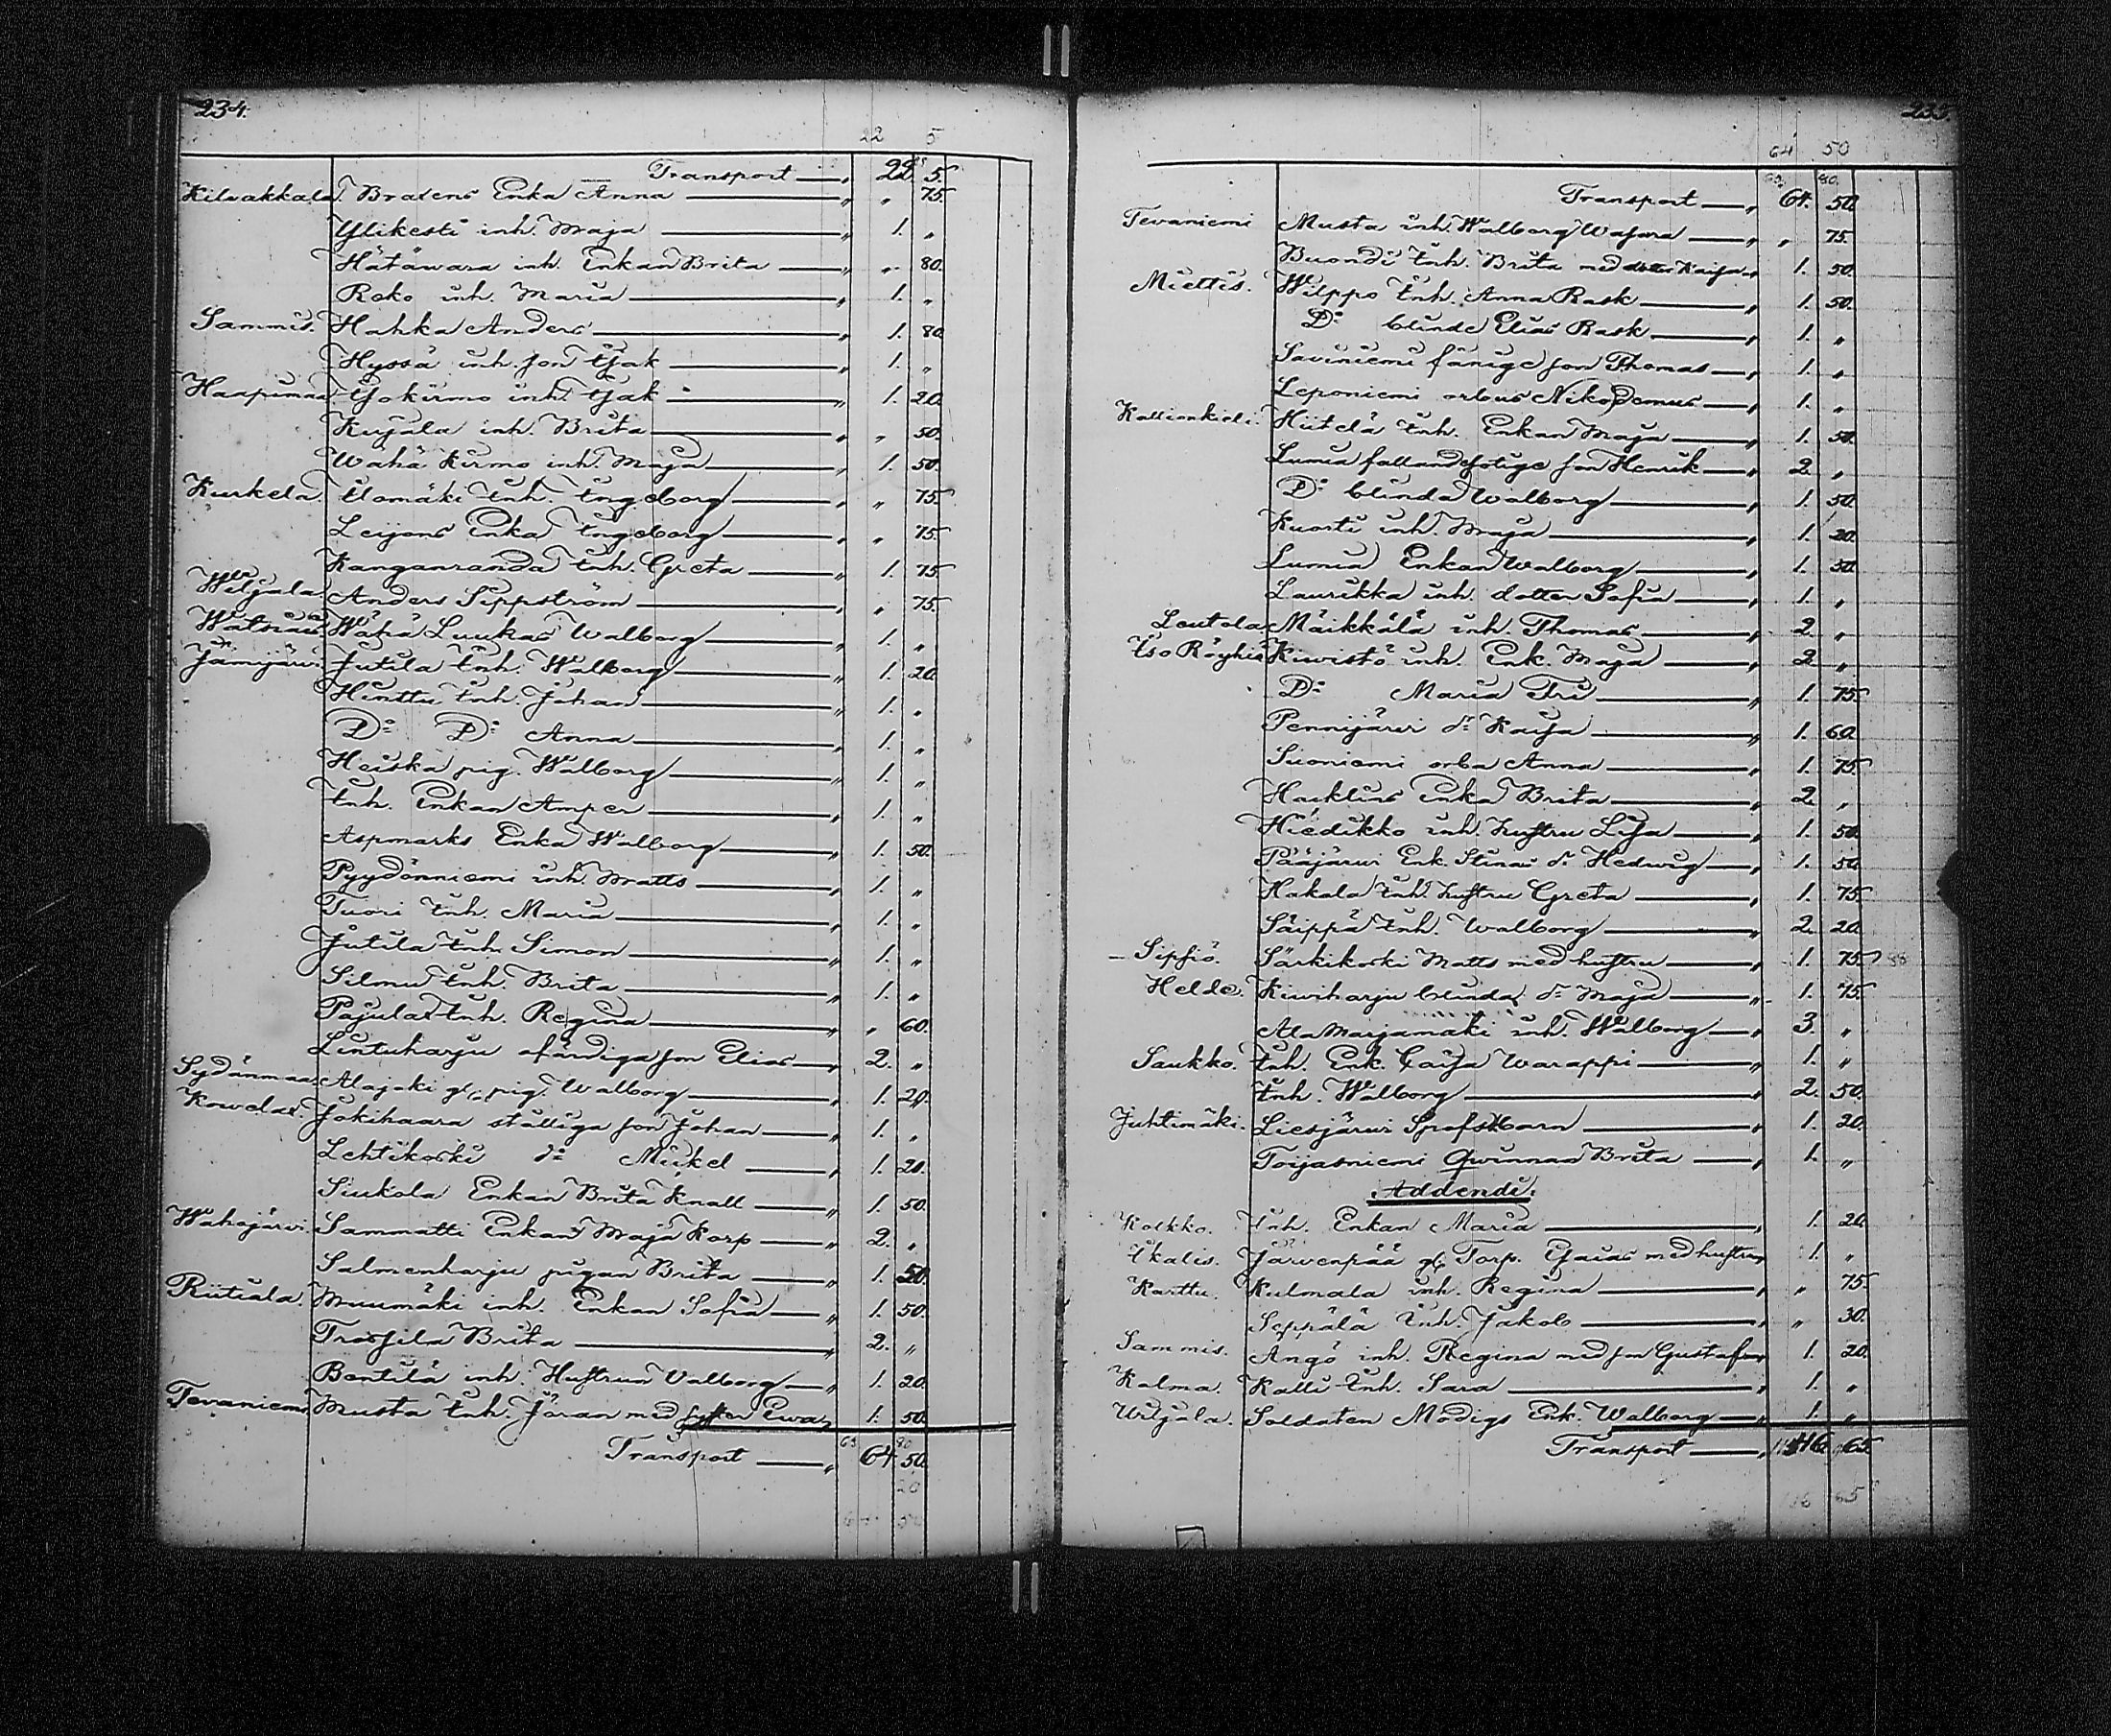 234.
22 5
Transport — „ 22. 5.
Kilvakkala. Brasens Enka Anna — „ „ 75.
Ylikesti inh. Maja — „ 1. „
Hätäwara inh. Enkan Brita — „ „ 80.
Roko inh. Maria — „ 1. „
Sammis. Hahka Anders — „ 1. 80.
Hyssä inh. son Isak — „ 1. „
Haapimaa. Isokirmo inh. Isak — „ 1. 20.
Kujala inh. Brita — „ „ 50.
Wähä Kirmo inh. Maja — „ 1. 50.
Kurkela. Ilomäki Inh. Ingeborg — „ „ 75.
Leijons Enka Ingeborg — „ „ 75.
Kanganranda Inh. Greta — „ 1. 75.
Wiljala. Anders Sippström — „ „ 75.
Wähä Luukas Walborg — „ 1. „
Jämijärvi. Jutila Inh. Walborg — „ 1. 20.
Hinttu Inh. Johan — „ 1. „
D:o D:o Anna — „ 1. „
Heiska pig. Walborg — „ 1. „
Inh. Enkan Amper — „ 1. „
Aspmarks Enka Walborg — „ 1. 50.
Pyydönniemi inh. Matts — „ 1. „
Tuori Inh. Maria — „ 1. „
Jutila Inh. Simon — „ 1. „
Silmu Inh. Brita — „ 1. „
Pajula Inh. Regina — „ „ 60.
Lintuharju ofärdiga son Elias — „ 2. „
Sydänmaa. Alajoki gl. pig. Walborg — „ 1. 20.
Kowelax. Jokihaara ställiga son Johan — „ 1. „
Lehtikoski d:o Mickel — „ 1. 20.
Siukola Enkan Brita Knall — „ 1. 50.
Wahojärvi. Sammatti Enkan Maja Korp — „ 2. „
Salmenharju pigan Brita — „ 1. 50.
Riitiala. Muumäki inh. Enkan Sofia — „ 1. 50.
Brita — „ 2. „
Bentilä inh. Hustrun Valborg — „ 1. 20.
Tevaniemi. Musta Inh. Göran med syster Ewa „ 1. 50.
63 80
Transport — „ 64. 50.
20
235.
64 50
63. 80.
Transport — „ 64. 50.
Tevaniemi Musta inh. Walborg — „ „ 75.
Buondi Inh. Brita med dotter Kaisa „ 1. 50.
Miettis. Wilppo Inh. Anna Rask — „ 1. 50.
D:o blinde Elias Rask — „ 1. „
Saviniemi fånige son Thomas — „ 1. „
Leponiemi orbus Nikodemus — „ 1. „
Kallionkieli. Hiitelä Inh. Enkan Maja — „ 1. 50.
Lumia fallandesotige son Henrik — „ 2. „
D:o blinda Walborg — „ 1. 50.
Kuosti inh. Maja — „ 1. 20.
Lumia Enkan Walborg — „ 1. 50.
Laurikka inh. dotter Sofia — „ 1. „
Leutola Mäikkälä inh. Thomas — „ 2. „
Iso Röyhiö Kuwistö inh. Enk. Maja — „ 2. „
D:o Maria Fri — „ 1. 75.
Pennijärvi d:r Kaisa — „ 1. 60.
Suoniemi orba Anna — „ 1. 75.
Hacklins Enka Brita — „ 2. „
Hiedikko inh. hustru Lisa — „ 1. 50.
Pääjärwi Enk. Stinas d:r Hedwig — „ 1. 50.
Hakala Inh. hustru Greta — „ 1. 75.
Säippä Inh. Walborg — „ 2. 20.
Sipsiö. Särkikoski Matts med hustru — „ 1. 75.
Helde. Kiwiharju blinda d:r Maja — „ 1. 75.
Ala Marjamäki inh. Walborg — „ 3. „
Saukko. Inh. Enk. Caisa Warappi — „ 1. „
Inh. Walborg — „ 2. 50.
Juhtimäki. Liesjärwi Barn — „ 1. 20.
Toijasniemi Qwinnan Brita — „ 1. „
Addendi.
Kolkko. Inh. Enkan Maria — „ 1. 20.
Ikalis. Järwenpää gl. Torp. Esaias med hustru „ 1. „
Karttu. Kulmala inh. Regina — „ „ 75.
Seppälä Inh. Jakob — „ „ 30.
Sammis. Angö inh. Regina med son Gustaf „ 1. 20.
Kalma. Kalli Inh. Sara — „ 1. „
Wiljala. Soldaten Modigs Enk. Walborg — „ 1. „
Transport — „ 116. 65.